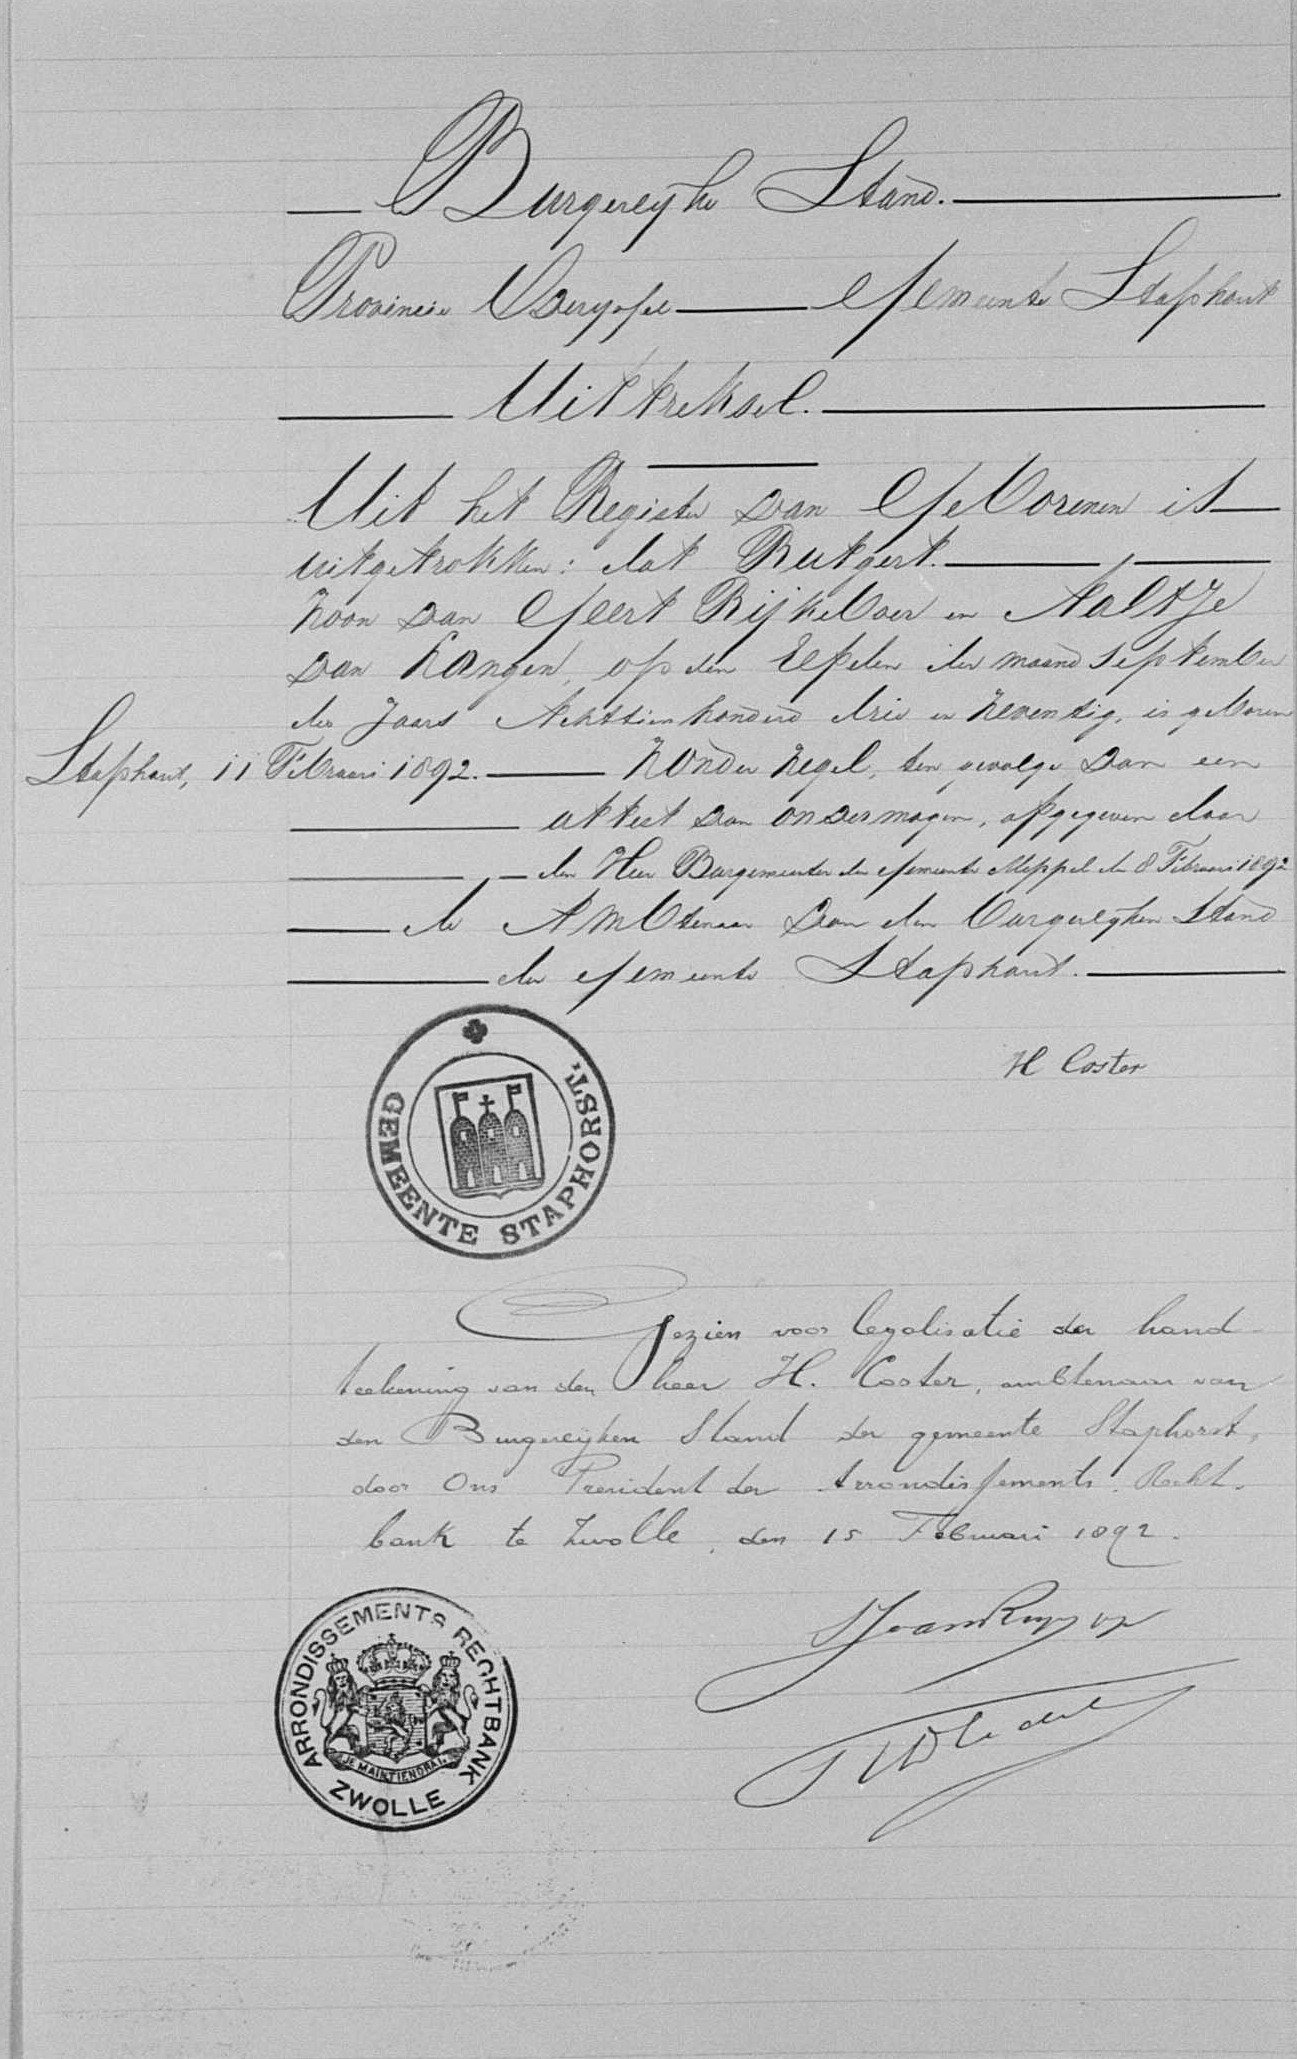 Burgerlyke Stand.
Provincie Overyssel Gemeente Staphorst
Uittreksel.
Uit het Register van Geborenen is
uitgetrokken: dat Rutgert.
Zoon van Geert Rijkeboer en Aaltje
van Kangen, op den Elfden der maand September
des Jaars Achttienhonderd drie en Zeventig, is geboren
Staphorst, 11 Februari 1892. Zonder Zegel, ten gevolge van een
attest van onvermogen, afgegeven door
den Heer Burgemeester der Gemeente Meppel den 8 Februari 1892
de Ambtenaar van den burgerlyken Stand
der Gemeente Staphorst.
H Coster
GEMEENTE STAPHORST.
Gezien voor legalisatie der hand-
teekening van den heer H. Coster, ambtenaar van
den Burgerlyken Stand der gemeente Staphorst,
door Ons President der Arrondissements Recht-
bank te Zwolle, den 15 Februari 1892.
ARRONDISSEMENTS RECHTBANK
JE MAINTIENDRAI
ZWOLLE